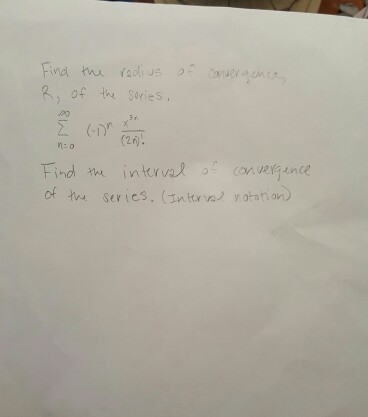 Find the radius of convergence,
R, of the series.
∞
Σ (-1)ⁿ x³ⁿ/(2n)!
n=0
Find the interval of convergence
of the series. (Interval notation)